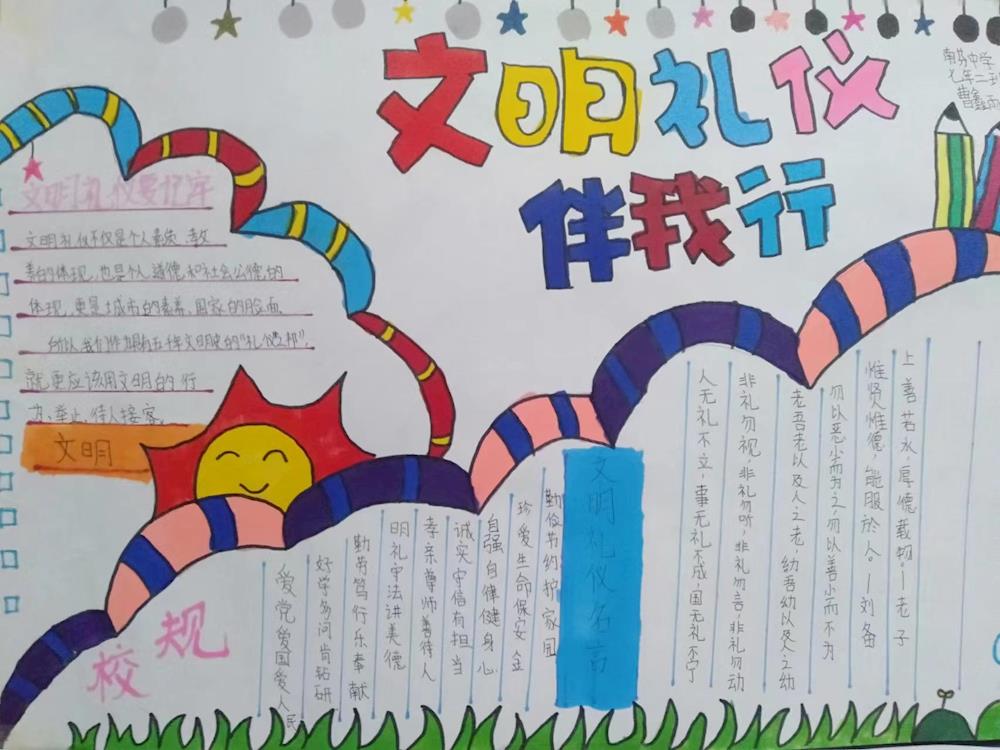 文明礼仪
伴我行
南芬中学
七年二班
曹鑫雨
文明礼仪要记牢
文明礼仪不仅是个人素质、教
养的体现，也是个人道德和社会公德的
体现，更是城市的素养、国家的脸面
所以，我们作为拥有五千年文明史的“礼仪之邦”，
就更应该用文明的行
为、举止，待人接客
文明
校规
爱党爱国爱人民
好学多问肯钻研
勤劳笃行乐奉献
明礼守法讲美德
孝亲尊师善待人
诚实守信有担当
自强自律健身心
珍爱生命保安全
勤俭节约护家园
文明礼仪名言
上善若水，厚德载物。—老子
惟贤惟德，能服於人。—刘备
勿以恶小而为之，勿以善小而不为
老吾老以及人之老，幼吾幼以及人之幼
非礼勿视，非礼勿听，非礼勿言，非礼勿动
人无礼不立，事无礼不成，国无礼不宁